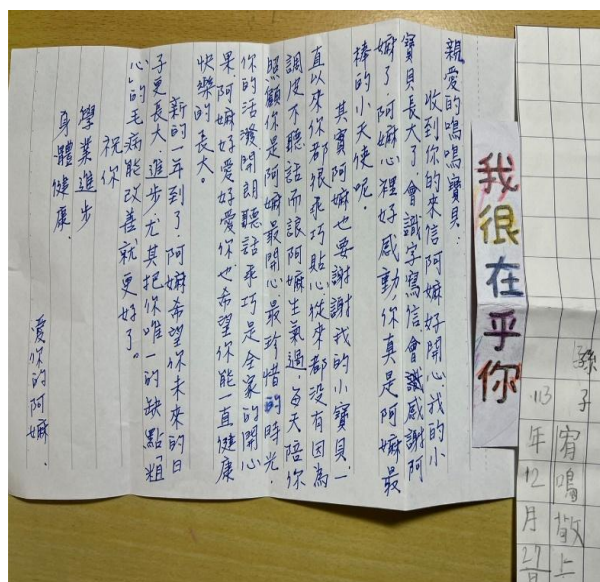 親愛的鳴鳴寶貝：
收到你的來信阿嫲好開心我的小
寶貝長大了，會識字寫信會感謝阿
嫲了阿嫲心裡好感動，你真是阿嫲最
棒的小天使呢。
其實阿嫲也要謝謝我的小寶貝，一
直以來你都很乖巧貼心從來都沒有因為
調皮不聽話而讓阿嫲生氣過，每天陪你
照顧你是阿嫲最開心最珍惜的時光，
你的活潑開朗聽話乖巧是全家的開心
果阿嫲好愛好愛你也希望你能一直健康
快樂的長大。
新的一年到了，阿嫲希望你未來的日
子更長大、進步尤其把你唯一的缺點「粗
心」的毛病能改善就更好了。
祝你
學業進步
身體健康.
愛你的阿嫲.
我很在乎你
孫子
宥鳴敬上
113年12月27